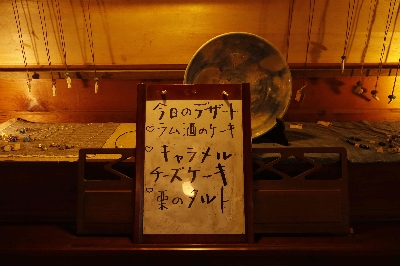 今日のデザート
♡ラム酒のケーキ
♡キャラメル
チーズケーキ
♡栗のタルト